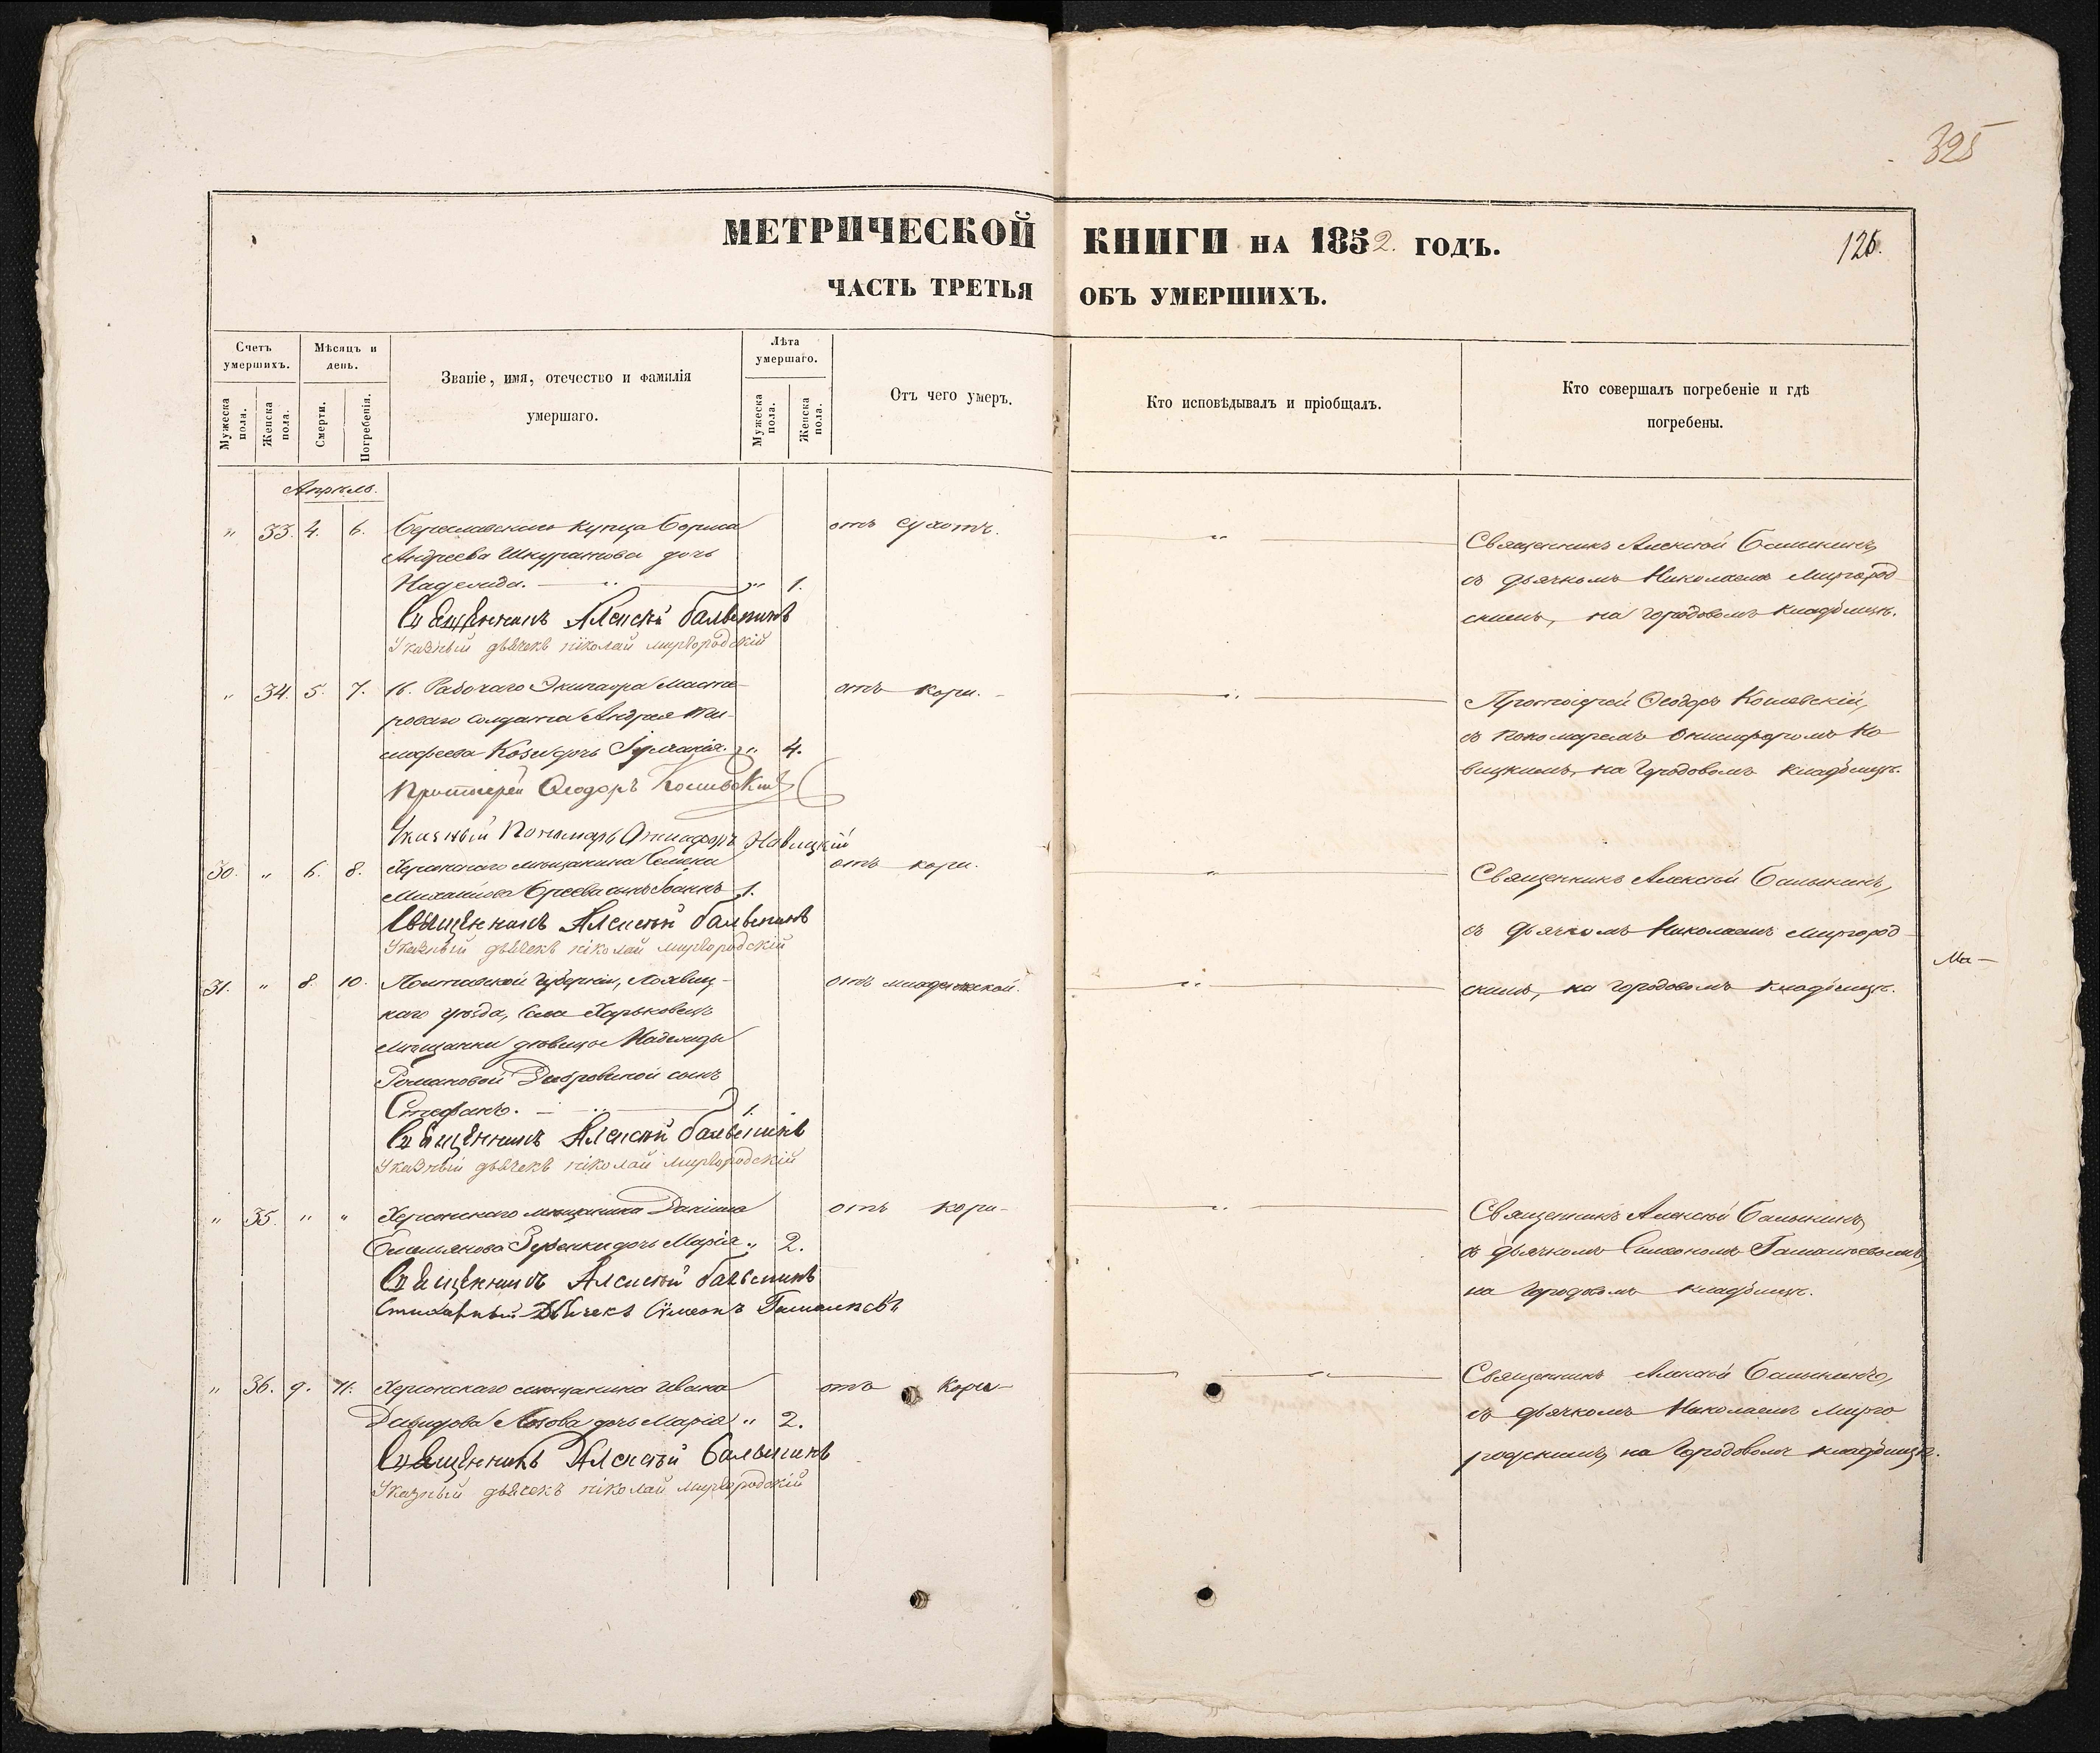 325
МЕТРИЧЕСКОЙ КНИГИ НА 1852. ГОДЪ.
126.
ЧАСТЬ ТРЕТЬЯ ОБЪ УМЕРШИХЪ.
Счетъ умершихъ.
Мужеска пола.
Женска пола.
Мѣсяцъ и день.
Смерти.
Погребенія.
Званіе, имя, отечество и фамилія умершаго.
Лѣта умершаго.
Мужеска пола.
Женска пола.
Отъ чего умеръ.
Кто исповѣдывалъ и пріобщалъ.
Кто совершалъ погребеніе и гдѣ погребены.
Апрѣль.
" 33. 4. 6. Береславскаго купца Бориса отъ сухотъ.
Андреева Шкуратова дочь
Надежда. " 1.
Священникъ Алексѣй Балыкинъ
Указный дьячекъ Николай Миргородскій
Священникъ Алексѣй Балыкинъ,
съ дьячкомъ Николаемъ Миргород
скимъ, на городовомъ кладбищѣ.
" 34. 5. 7. 16. Рабочаго Экипажа Масте- отъ кори.
роваго солдата Андрея Ти-
мофеева дочь " 4.
Протоіерей Ѳеодоръ
Указный Пономарь Новицкій
Протоіерей Ѳеодоръ
съ пономаремъ Онисифоромъ Но
вицкимъ, на городовомъ кладбищѣ.
30. " 6. 8. Херсонскаго мѣщанина Семена отъ кори.
Михайлова сынъ Іоаннъ 1.
Священникъ Алексѣй Балыкинъ
Указный дьячекъ Николай Миргородскій
Священникъ Алексѣй Балыкинъ,
съ дьячкомъ Николаемъ Миргород
скимъ, на городовомъ кладбищѣ.
Ма-
31. " 8. 10. Полтавской Губерніи, Лохвиц- отъ младенской.
каго уѣзда, села Харьковецъ
мѣщанки дѣвицы Надежды
Романовой сынъ
Стефанъ. 1.
Священникъ Алексѣй Балыкинъ
Указный дьячекъ Николай Миргородскій
" 35. " " Херсонскаго мѣщанина Даніила отъ кори-
Емельянова дочь Марія. " 2.
Священникъ Алексѣй Балыкинъ
Стихарный Дьячекъ Симеонъ
Священникъ Алексѣй Балыкинъ,
съ дьячкомъ Симеономъ
на городскомъ кладбищѣ.
" 36. 9. 11. Херсонскаго мѣщанина Ивана отъ кори-
Давидова дочь Марія " 2.
Священникъ Алексѣй Балыкинъ
Указный дьячекъ Николай Миргородскій
Священникъ Алексѣй Балыкинъ,
съ дьячкомъ Николаемъ Мирго
родскимъ, на городовомъ кладбищѣ.